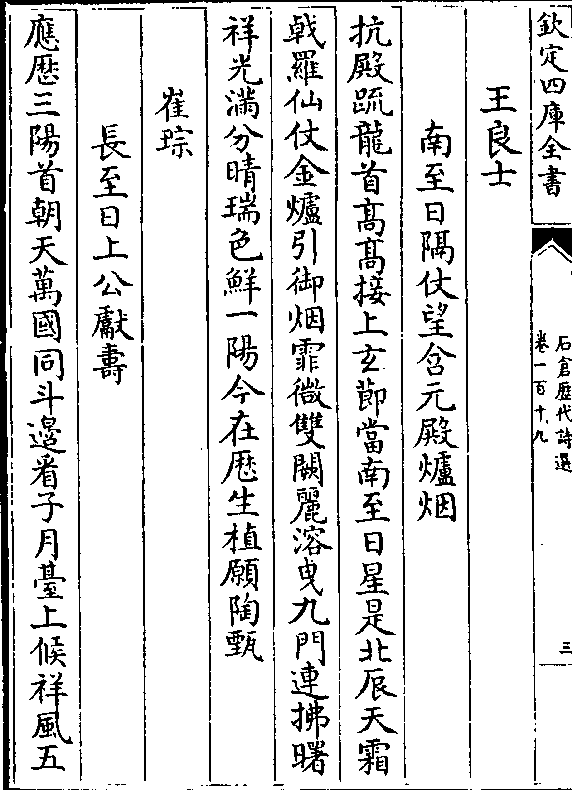 欽定四庫全書
石倉歴代詩選
卷一百十九
三
王良士
南至日隔仗望含元殿爐烟
抗殿疏龍首髙髙接上玄節當南至日星是北辰天霜
㦸羅仙仗金爐引御烟霏微雙闕麗溶曳九門連拂曙
祥光滿分晴瑞色鮮一陽今在厯生植願陶甄
崔琮
長至日上公獻夀
應厯三陽首朝天萬國同斗邉看子月臺上候祥風五